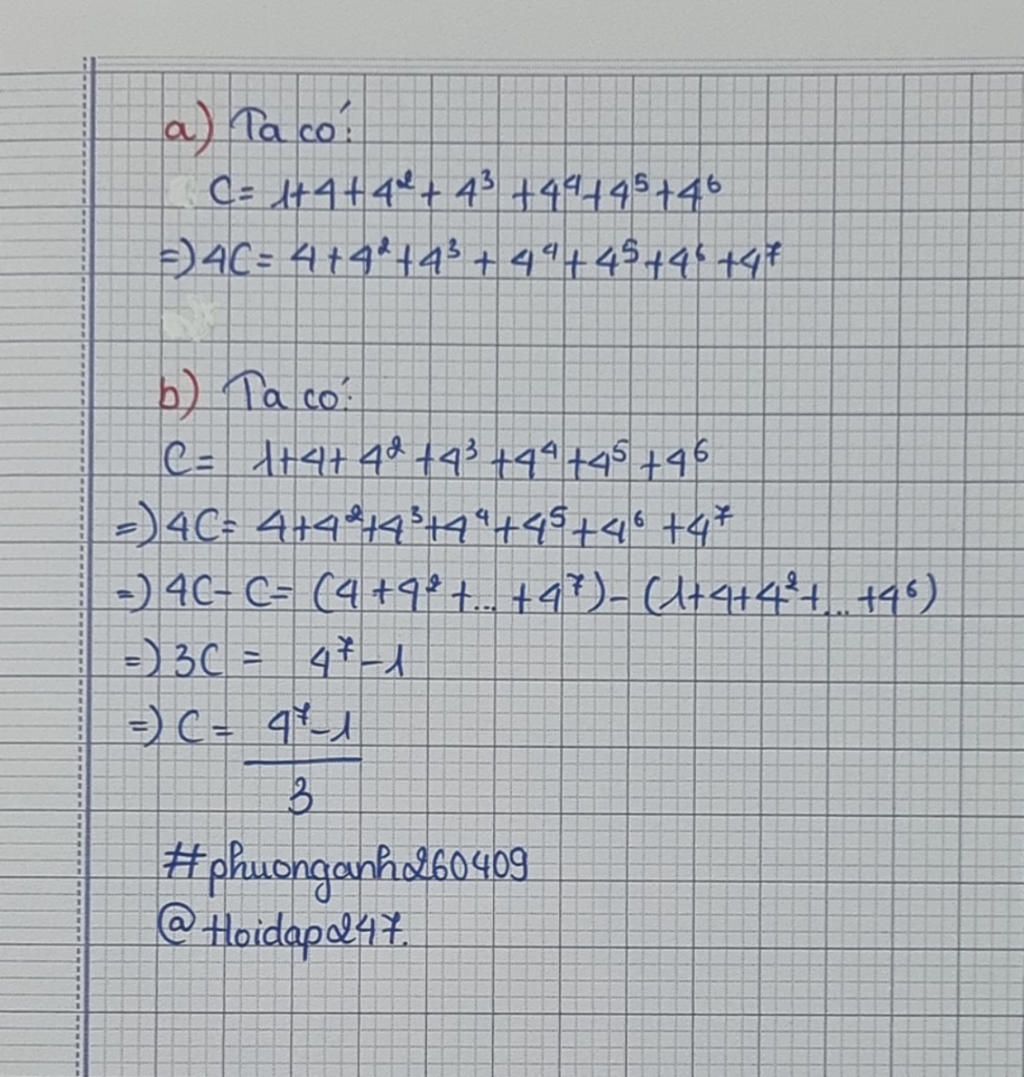 a) Ta có:
C = 1+4+4² + 4³ +4⁴+4⁵+4⁶
=) 4C = 4+4²+4³ + 4⁴+4⁵+4⁶ +4⁷
b) Ta có:
C = 1+4+4² +4³ +4⁴ +4⁵ +4⁶
=) 4C = 4+4²+4³+4⁴+4⁵+4⁶ +4⁷
=) 4C - C = (4+4²+... +4⁷) - (1+4+4²+... +4⁶)
=) 3C = 4⁷-1
=) C = 4⁷-1
3
#phuonganh260409
@Hoidap247.